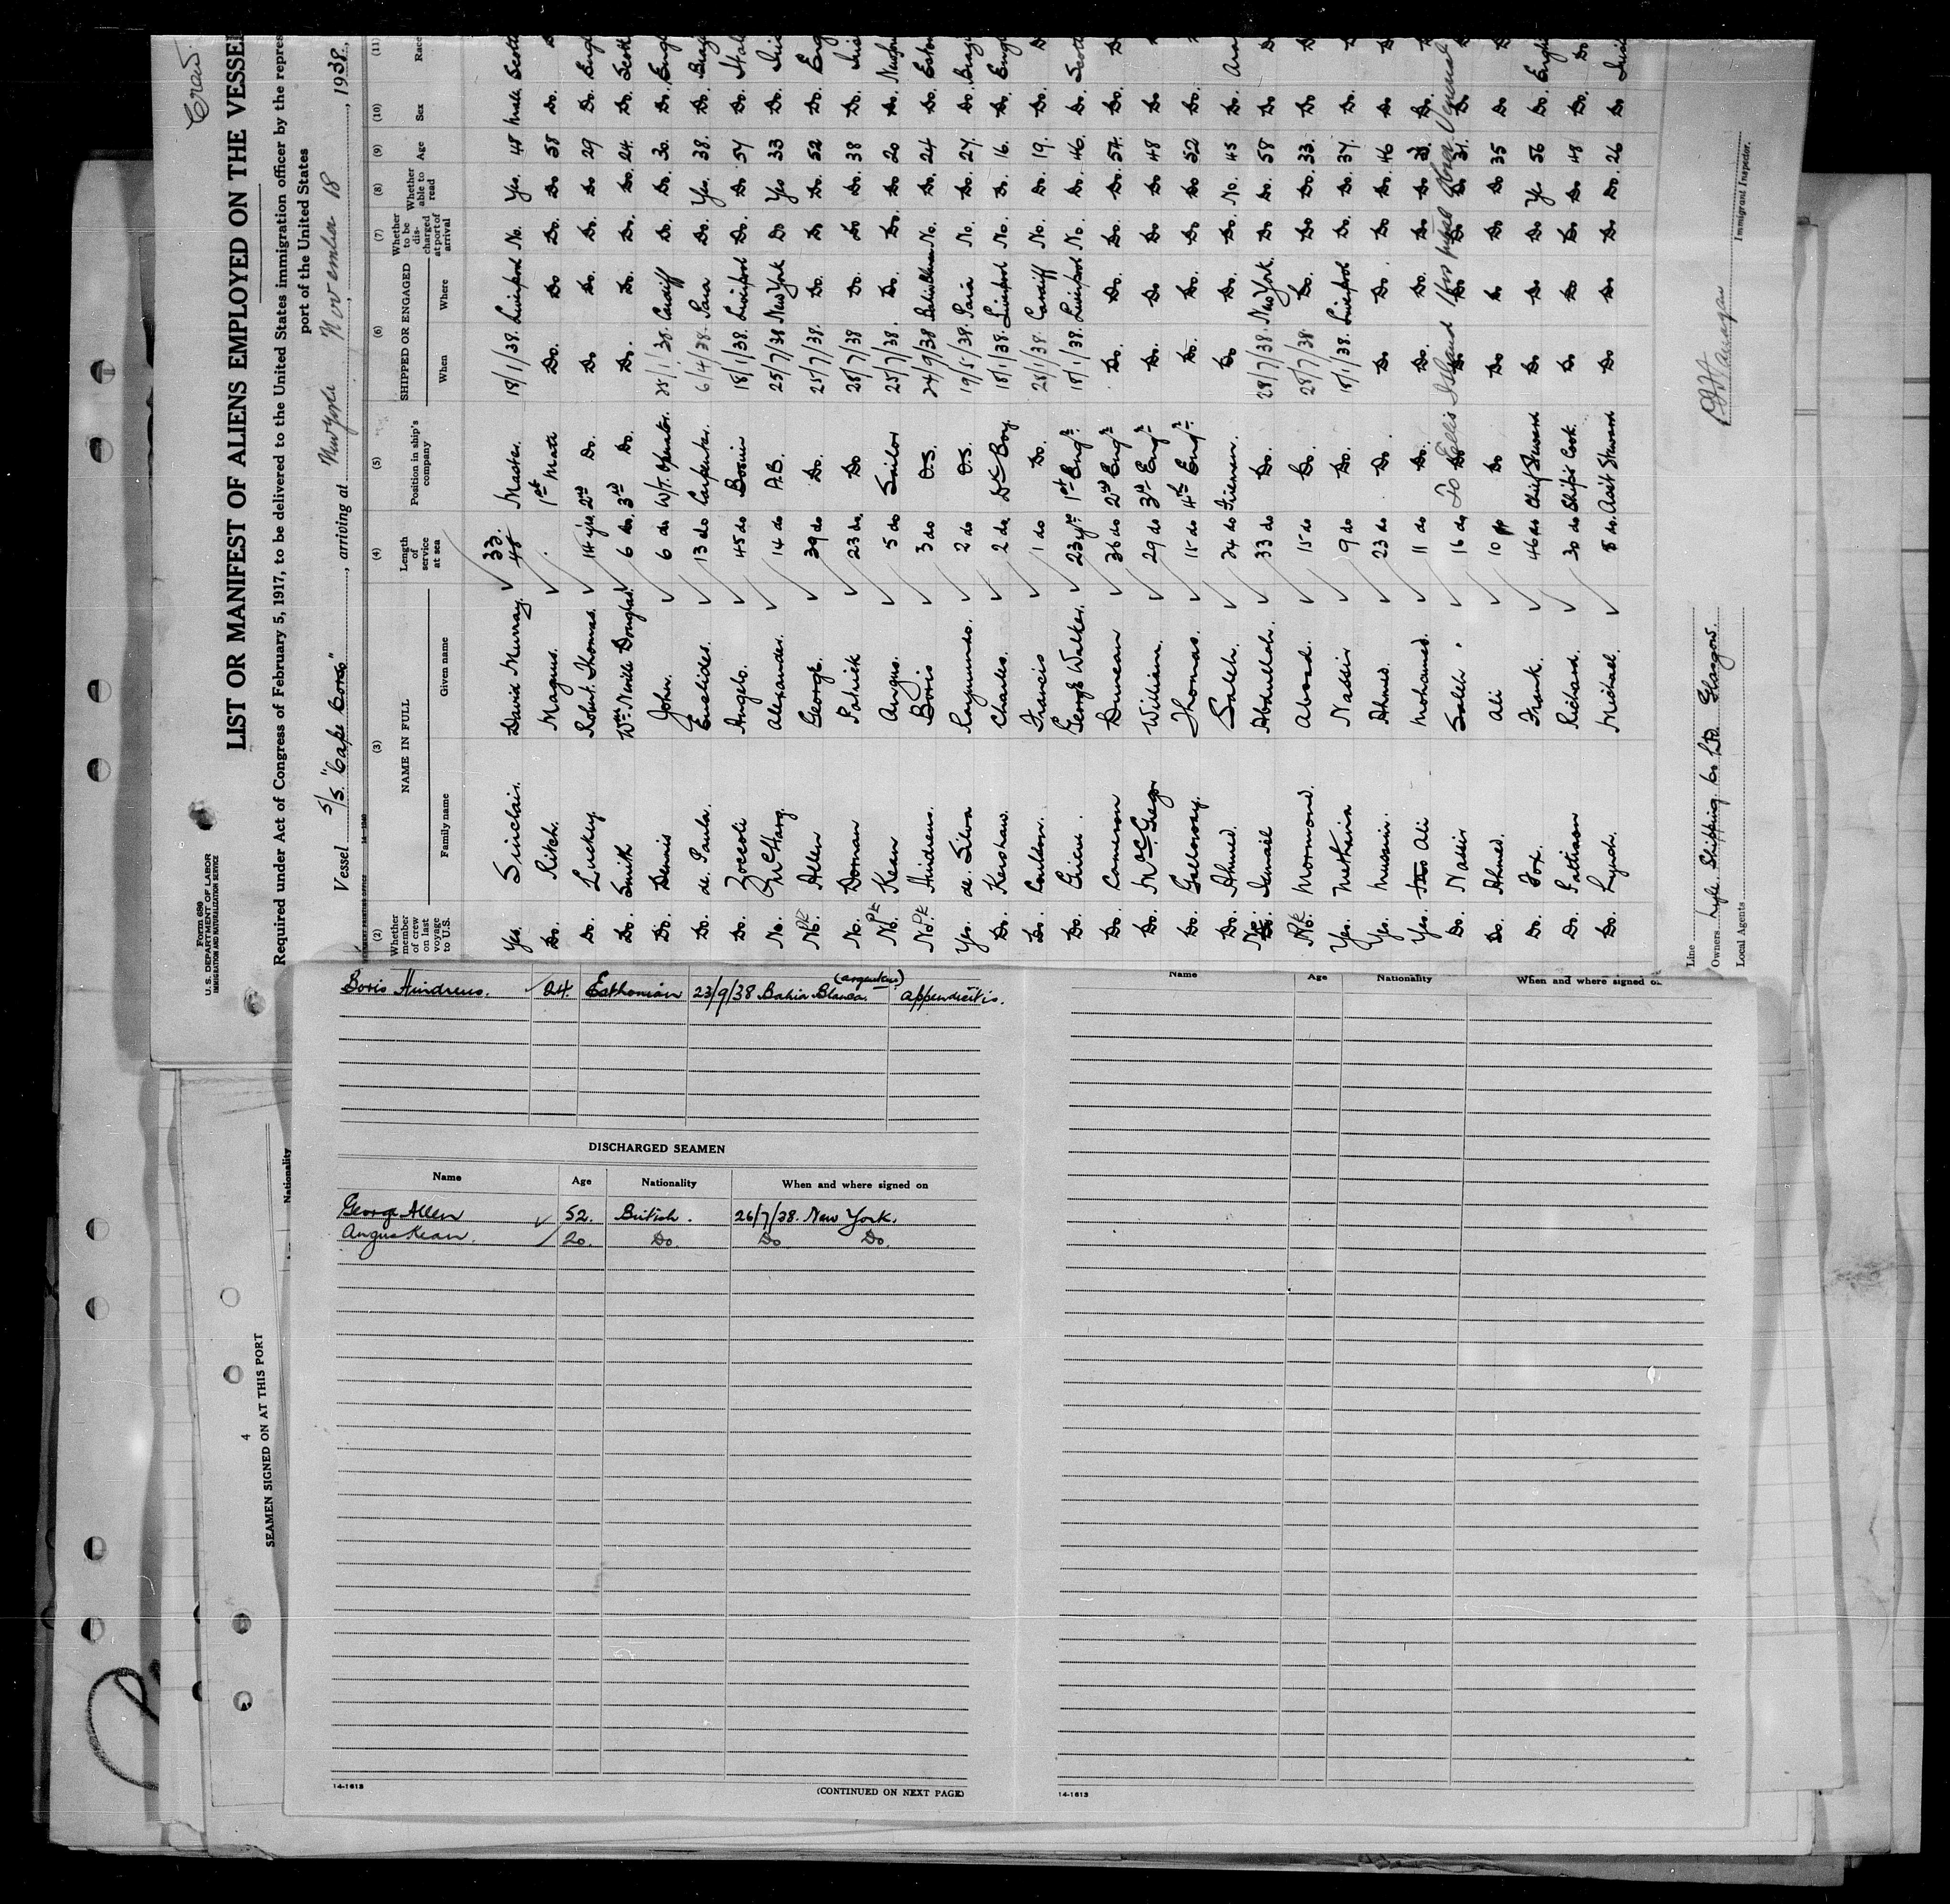 Crew.
Form 680
U. S. DEPARTMENT OF LABOR
IMMIGRATION AND NATURALIZATION SERVICE
LIST OR MANIFEST OF ALIENS EMPLOYED ON THE VESSEL
Required under Act of Congress of February 5, 1917, to be delivered to the United States immigration officer by the repres
port of the United States
Vessel S/S. "Cape Corso", arriving at New York, November 18, 1938.
(2) (3) (4) (5) (6) (7) (8) (9) (10) (11)
Whether member of crew on last voyage to U.S. NAME IN FULL Family name Given name Length of service at sea Position in ship's company SHIPPED OR ENGAGED When Where Whether to be discharged at port of arrival Whether able to read Age Sex Race
Yes. Sinclair. David Murray. 33. 48 Master. 18/1/38. Liverpool No. Yes. 48 Male Scott
Do. Ritch. Magnus. 1st Mate Do. Do Do. Do 58 Do. D
Do. Luckey Robert Thomas. 14 yrs. 2nd Do. Do Do. Do. Do 29 Do. Engl
Do. Smith Wm. Neville Douglas. 6 do. 3rd Do. Do. Do. Do. Do. 24. Do. Scott
Do. Dennis John. 6 do W/T. Operator. 28/1/38. Cardiff Do. Do. 30. Do. Engl
Do. de. Paula. Euclides. 13 do Carpenter. 6/4/38. Para Do. Yes. 38. Do. Braz
Do. Zoccoli Angelo. 45 do Bosun 18/1/38. Liverpool Do. Do 57 Do. Ital
No. McHarg. Alexander. 14 do A.B. 25/7/38 New York Do Yes 33 Do. Iri
No. Allen George. 39 do Do. 25/7/38. Do. Do Do. 52 Do. Eng
No. Donnan Patrick 23 do. Do 28/7/38 Do. Do Do. 38 Do. Iris
No. Kean Angus. 5 do Sailor 25/7/38. Do. Do. Do 20 Do. Newfou
No. Hindreus. Boris 3 do O.S. 24/9/38 Bahia Blanca No. Do. 24 Do. Eston
Yes. de. Silva Raymundo. 2 do O.S. 19/5/38. Para No. Do. 27. Do. Brazi
Do. Kershaw. Charles. 2 do. Dk Boy. 18/1/38. Liverpool No. Do. 16. Do. Engl
Do. Francis 1 do Do. 28/1/38. Cardiff No. Do. 19. Do. D
Do. George Walker. 23 yrs 1st Engr. 18/1/38. Liverpool No. Do. 46. Do. Scott
Do. Cameron Duncan 36 do 2nd Engr. Do. Do. Do. Do. 54. Do. D
Do. McGregor William. 29 do 3rd Engr. Do. Do Do. Do 48 Do
Do. Galloway. Thomas. 15 do 4th Engr. Do. Do. Do. Do 52 Do.
Do. Ahmed. Saleh. 24 do Fireman. Do Do. Do. No. 45 Do. Ara
No. Ismail Abdullah. 33 do Do. 28/7/38. New York. Do Do. 58 Do D
No. Abood. 15 do Do. 28/7/38 Do. Do Do. 33. Do D
Yes. Methana Nassir 9 do Do. 18/1/38. Liverpool Do. Do. 37. Do. D
Yes Ahmed. 23 do Do. Do Do. Do Do. 46 Do D
Yes. Ali Mohamed. 11 do Do. Do. Do. Do Do 33. Do. D
Do. Nassir Saleh. 16 do Do Do Do Do Do 31. Do D
To Ellis Island Hospital
Do. Ahmed. Ali 10 Do Do Do Do Do 35 Do D
Do. Fox. Frank. 46 do Chief Steward Do Do Do Ye 56 Do. Engli
Do. Richard. 30 do Ship's Cook. Do Do Do Do 48 Do. Do
Do. Lynch. Michael. 8 do. Asst Steward Do Do Do Do. 26 Do Irish
Line
Owners Lyle Shipping Co Ltd. Glasgow.
Local Agents
Immigrant Inspector.
Boris Hindreus. 24. Esthonian 23/9/38 Bahia Blanca. (Argentine) Appendicitis.
DISCHARGED SEAMEN
Name Age Nationality When and where signed on
George Allen 52. British. 26/7/38. New York.
Angus Kean. 20. Do. Do Do.
14-1613
(CONTINUED ON NEXT PAGE)
Name Age Nationality When and where signed on
14-1613
4
SEAMEN SIGNED ON AT THIS PORT
Nationality